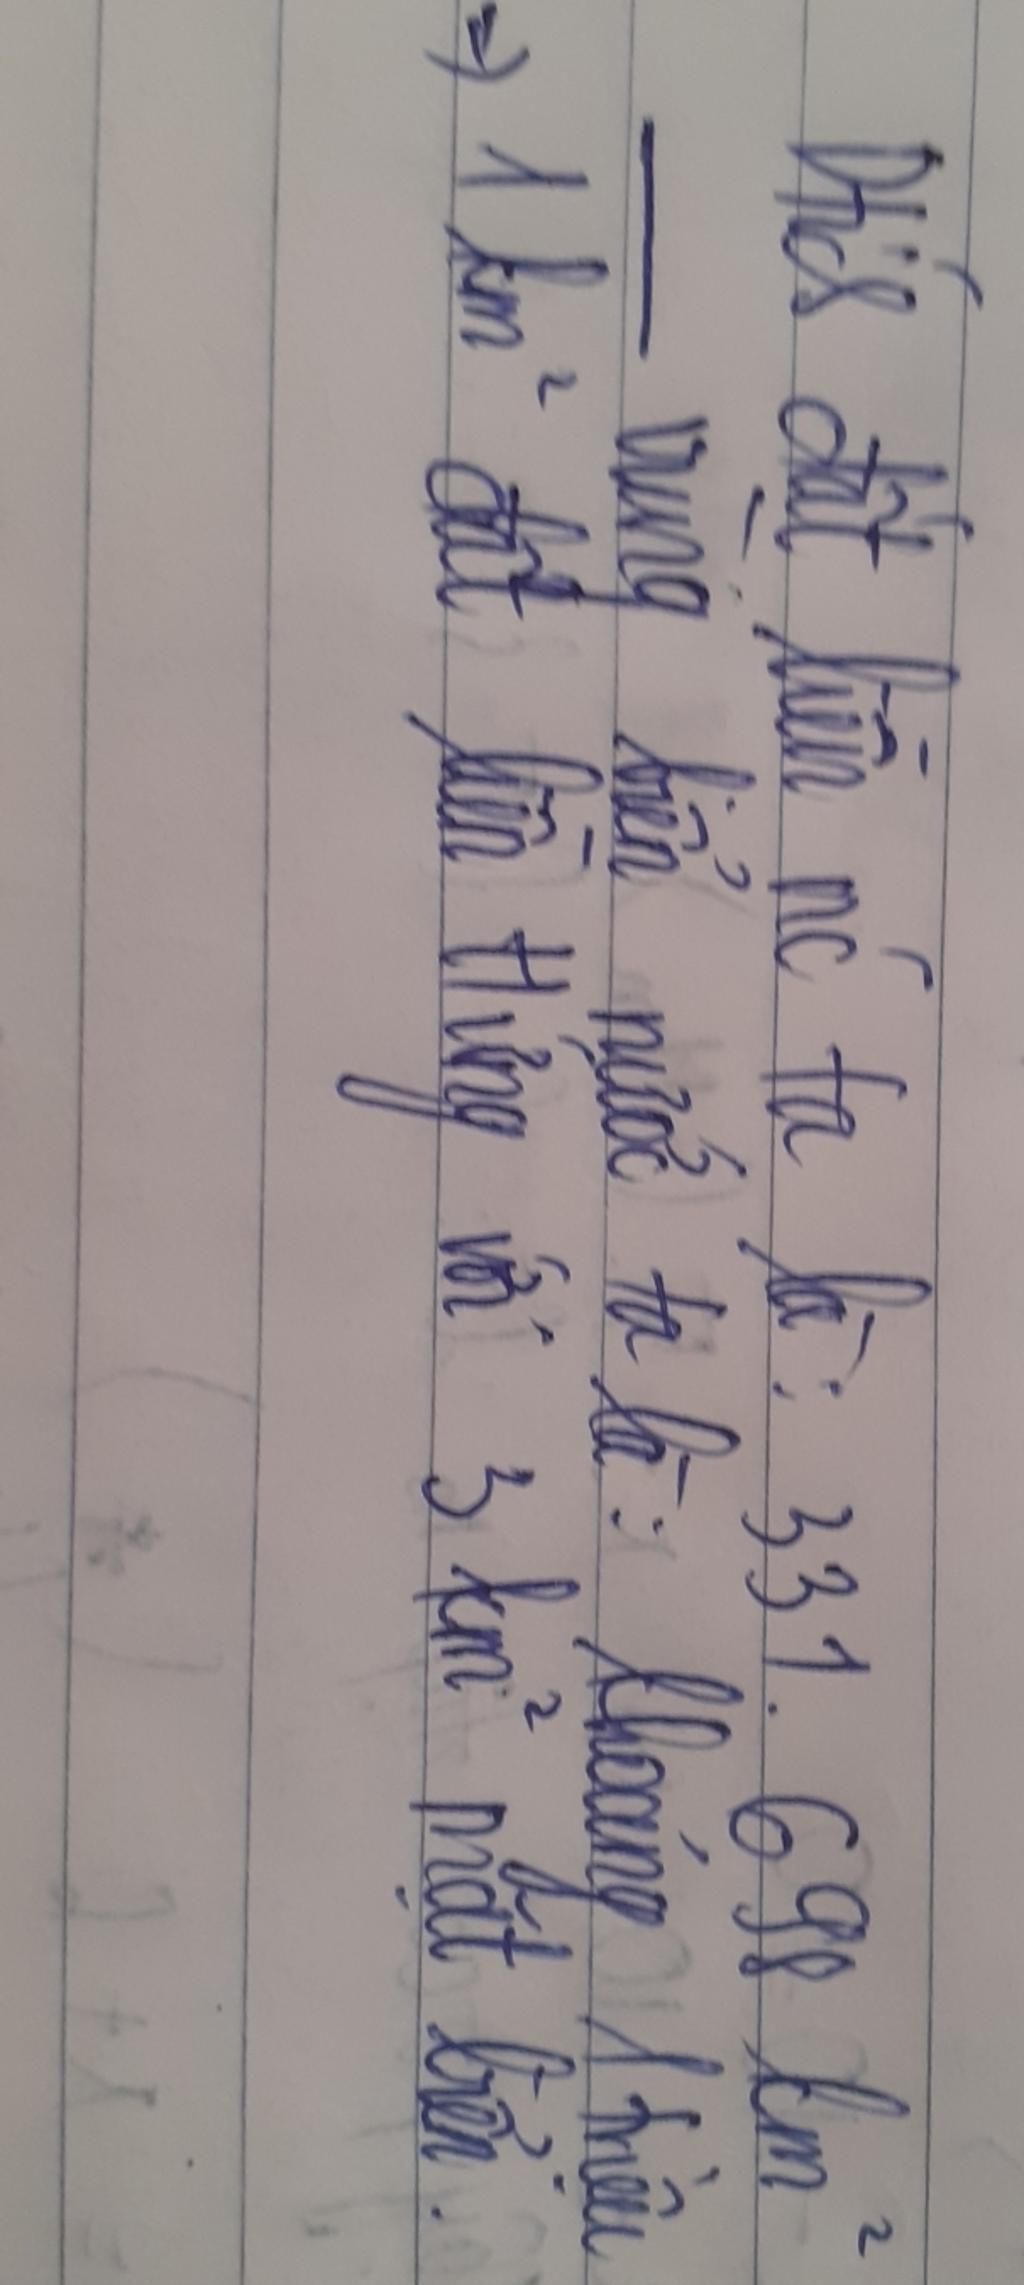 Dtích đất liền nc ta là: 331.698 km²
— vùng biển nước ta là: khoảng 1 triệu
=> 1 km² đất liền t/ứng với 3 km² mặt biển.